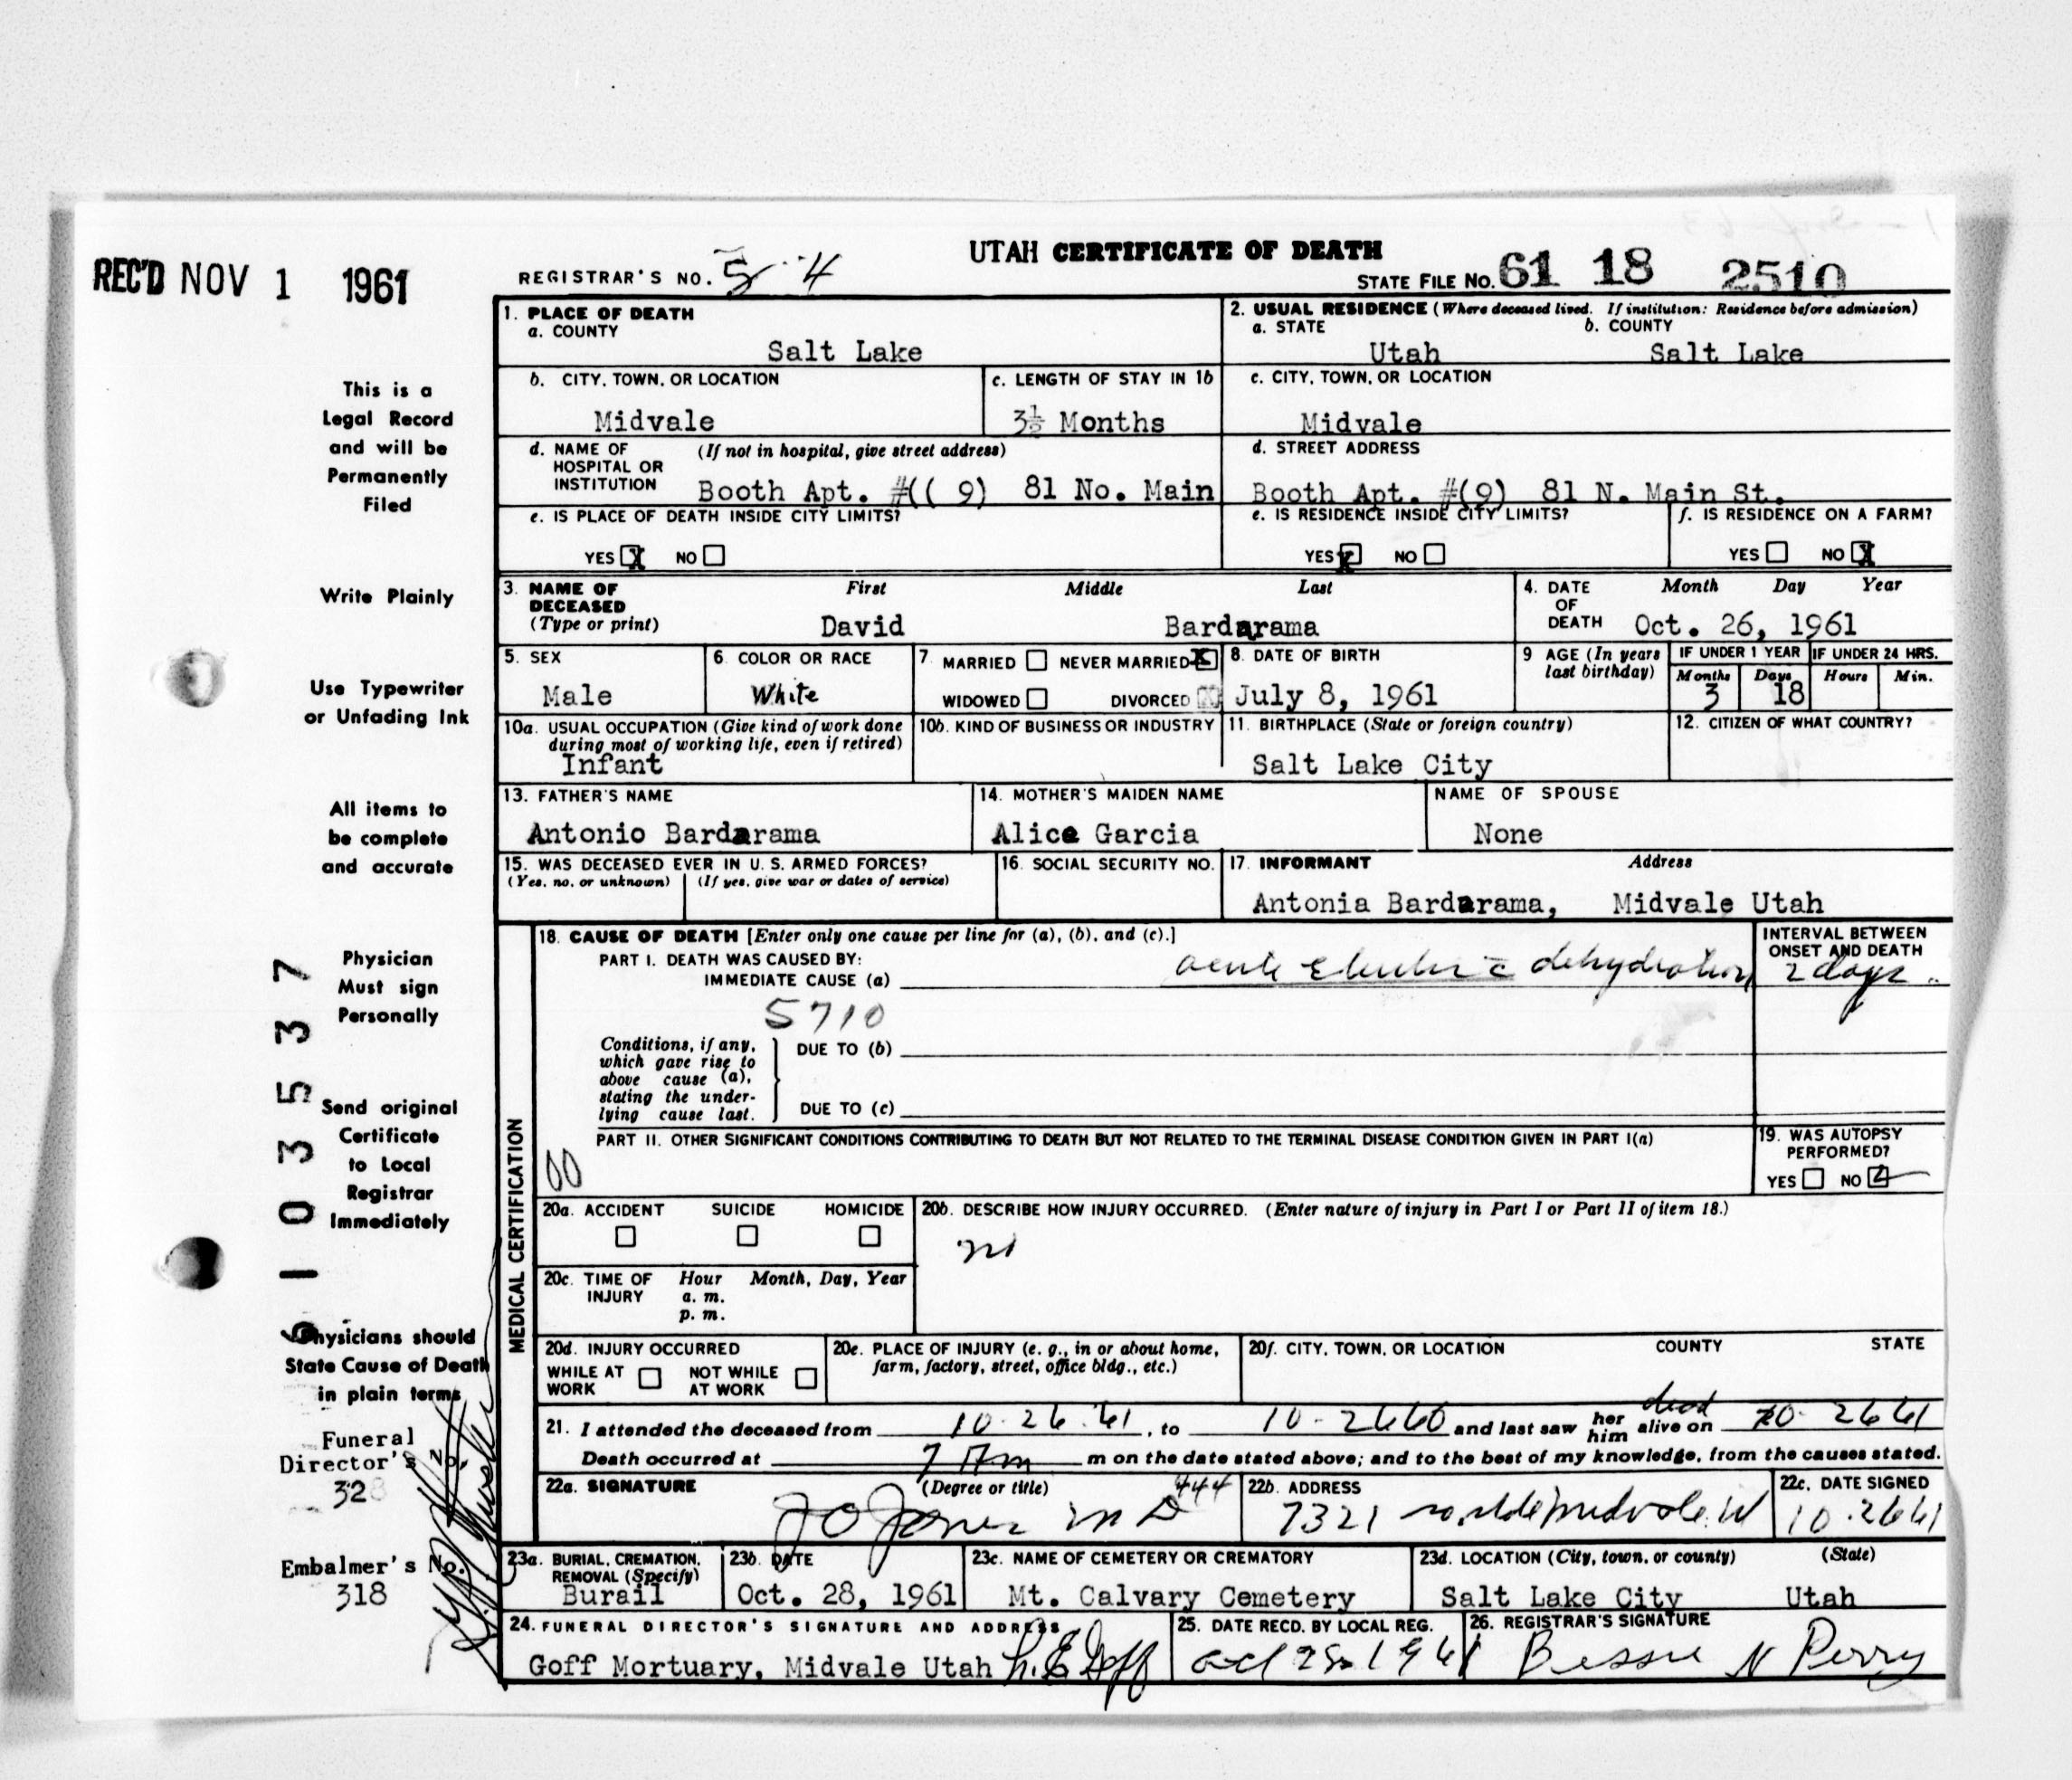 UTAH CERTIFICATE OF DEATH
REC'D NOV 1 1961
REGISTRAR'S NO. 5 4
STATE FILE NO. 61 18 2510
1. PLACE OF DEATH
a. COUNTY
Salt Lake
2. USUAL RESIDENCE (Where deceased lived. If institution: Residence before admission)
a. STATE b. COUNTY
Utah Salt Lake
b. CITY, TOWN, OR LOCATION
Midvale
c. LENGTH OF STAY IN 1b
3½ Months
c. CITY, TOWN, OR LOCATION
Midvale
d. NAME OF HOSPITAL OR INSTITUTION (If not in hospital, give street address)
Booth Apt. #(( 9) 81 No. Main
d. STREET ADDRESS
Booth Apt. #(9) 81 N. Main St.
e. IS PLACE OF DEATH INSIDE CITY LIMITS?
YES X NO
e. IS RESIDENCE INSIDE CITY LIMITS?
YES X NO
f. IS RESIDENCE ON A FARM?
YES NO X
3. NAME OF DECEASED (Type or print)
First Middle Last
David Bardarama
4. DATE OF DEATH Month Day Year
Oct. 26, 1961
5. SEX
Male
6. COLOR OR RACE
White
7. MARRIED NEVER MARRIED X
WIDOWED DIVORCED
8. DATE OF BIRTH
July 8, 1961
9 AGE (In years last birthday)
IF UNDER 1 YEAR IF UNDER 24 HRS.
Months Days Hours Min.
3 18
10a. USUAL OCCUPATION (Give kind of work done during most of working life, even if retired)
Infant
10b. KIND OF BUSINESS OR INDUSTRY
11. BIRTHPLACE (State or foreign country)
Salt Lake City
12. CITIZEN OF WHAT COUNTRY?
13. FATHER'S NAME
Antonio Bardarama
14. MOTHER'S MAIDEN NAME
Alice Garcia
NAME OF SPOUSE
None
15. WAS DECEASED EVER IN U. S. ARMED FORCES?
(Yes, no, or unknown) (If yes, give war or dates of service)
16. SOCIAL SECURITY NO.
17. INFORMANT Address
Antonia Bardarama, Midvale Utah
MEDICAL CERTIFICATION
18. CAUSE OF DEATH [Enter only one cause per line for (a), (b), and (c).]
PART I. DEATH WAS CAUSED BY:
IMMEDIATE CAUSE (a) acute dehydration
INTERVAL BETWEEN ONSET AND DEATH
2 days
5710
Conditions, if any, which gave rise to above cause (a), stating the underlying cause last.
DUE TO (b)
DUE TO (c)
PART II. OTHER SIGNIFICANT CONDITIONS CONTRIBUTING TO DEATH BUT NOT RELATED TO THE TERMINAL DISEASE CONDITION GIVEN IN PART I(a)
00
19. WAS AUTOPSY PERFORMED?
YES NO
20a. ACCIDENT SUICIDE HOMICIDE
20b. DESCRIBE HOW INJURY OCCURRED. (Enter nature of injury in Part I or Part II of item 18.)
20c. TIME OF INJURY Hour Month, Day, Year
a. m.
p. m.
20d. INJURY OCCURRED
WHILE AT WORK NOT WHILE AT WORK
20e. PLACE OF INJURY (e. g., in or about home, farm, factory, street, office bldg., etc.)
20f. CITY, TOWN, OR LOCATION COUNTY STATE
21. I attended the deceased from 10-26-61, to 10-26 60 and last saw her him alive dead on 10-26 61
Death occurred at 7 Am m on the date stated above; and to the best of my knowledge, from the causes stated.
22a. SIGNATURE (Degree or title) 444
J O Jones M D
22b. ADDRESS
7321 Midvale U
22c. DATE SIGNED
10-26 61
23a. BURIAL, CREMATION, REMOVAL (Specify)
Burail
23b. DATE
Oct. 28, 1961
23c. NAME OF CEMETERY OR CREMATORY
Mt. Calvary Cemetery
23d. LOCATION (City, town, or county) (State)
Salt Lake City Utah
24. FUNERAL DIRECTOR'S SIGNATURE AND ADDRESS
Goff Mortuary, Midvale Utah L. E. Goff
25. DATE RECD. BY LOCAL REG.
Oct 28 1961
26. REGISTRAR'S SIGNATURE
Bessie N Perry
This is a
Legal Record
and will be
Permanently
Filed
Write Plainly
Use Typewriter
or Unfading Ink
All items to
be complete
and accurate
Physician
Must sign
Personally
Send original
Certificate
to Local
Registrar
Immediately
Physicians should
State Cause of Death
in plain terms
Funeral
Director's No.
328
Embalmer's No.
318
6103537